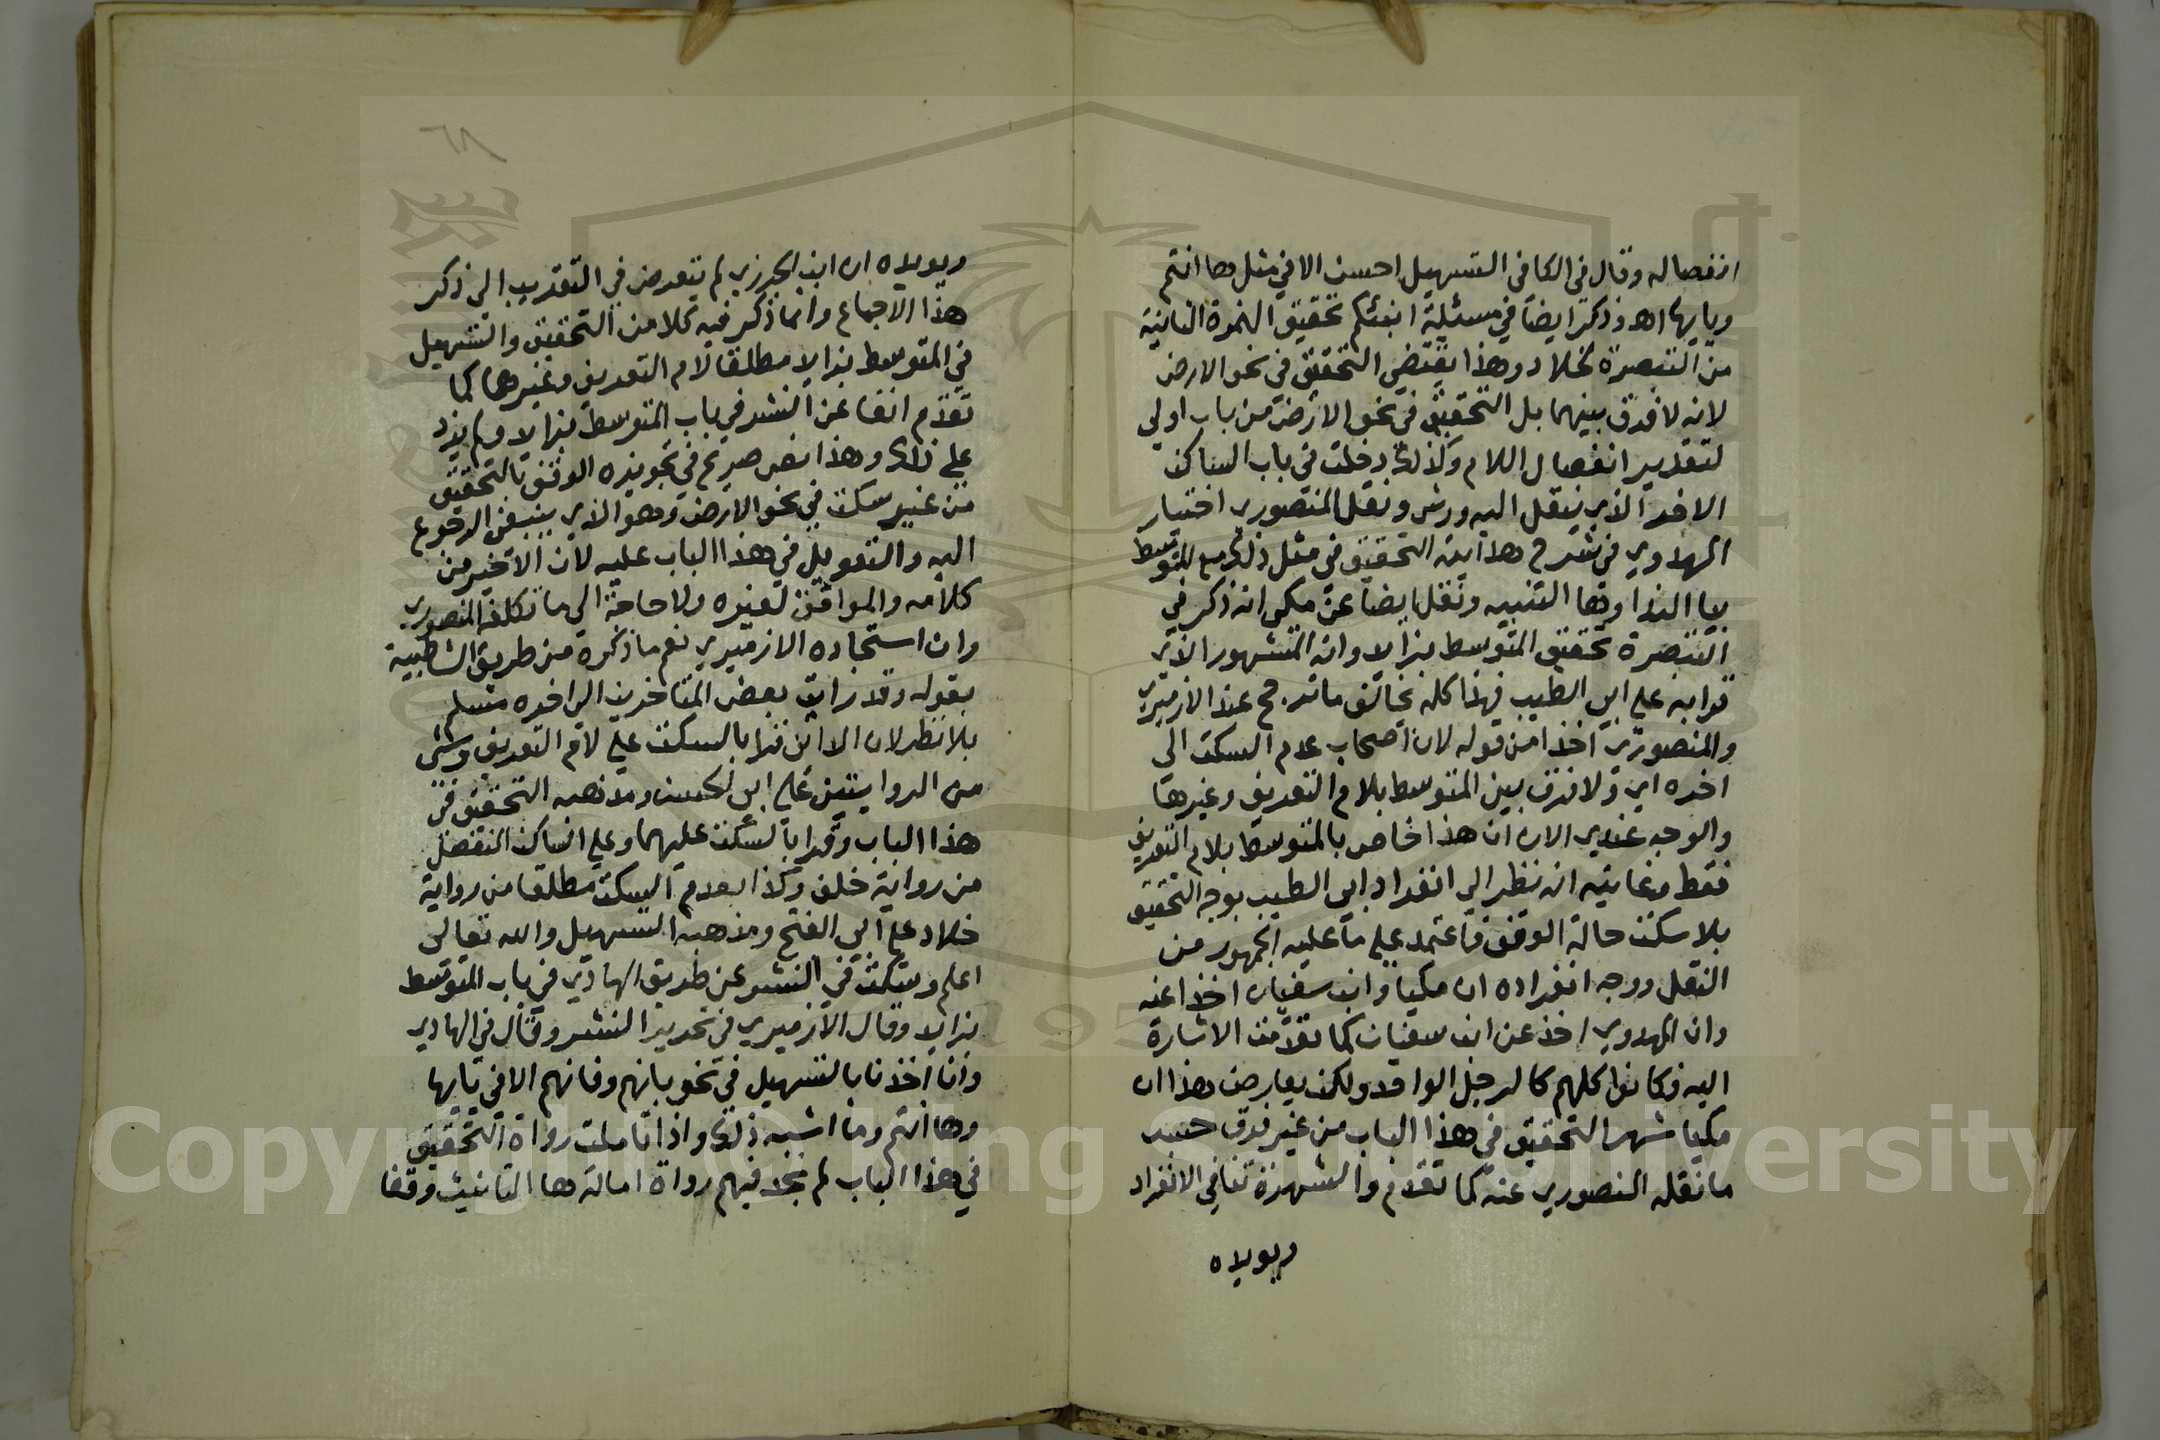 انفصاله وقال في الكافي التسهيل احسن الا في مثل ها انتم
ويايها اه وذكر ايضا في مسئلة ائنكم تحقيق الهمزة الثانية
من التبصرة لخلاد وهذا يقتضي التحقيق في نحو الارض
لانه لا فرق بينهما بل التحقيق في نحو الارض من باب اولى
لتقدير انفصال اللام وكذلك دخلت في باب الساكن
الاخر الذي ينقل اليه ورش ونقل المنصوري اختيار
المهدوي في شرح هدايته التحقيق في مثل ذلك مع المتوسط
بيا الندا وها التنبيه ونقل ايضا عن مكي انه ذكر في
التبصرة تحقيق المتوسط بزايد وانه المشهور الذي
قرا به على ابي الطيب فهذا كله يخالف ما ترجح عند الازميري
والمنصوري اخذا من قوله لان اصحاب عدم السكت الى
اخره اي ولا فرق بين المتوسط بلام التعريف وغيرها
والوجه عندي الان ان هذا خاص بالمتوسط بلام التعريف
فقط وغايته انه نظر الى انفراد ابي الطيب بوجه التحقيق
بلا سكت حالة الوقف فاعتمد على ما عليه الجمهور من
النقل ووجه انفراده ان مكيا وابن سفيان اخذا عنه
وان المهدوي اخذ عن ابن سفيان كما تقدمت الاشارة
اليه فكانوا كلهم كالرجل الواحد ولكن يعارض هذا ان
مكيا شهر التحقيق في هذا الباب من غير فرق حسب
ما نقله المنصوري عنه كما تقدم والشهرة تنافي الانفراد
ويويده
٦٨
ويويده ان ابن الجزري لم يتعرض في التقريب الى ذكر
هذا الاجماع وانما ذكر فيه كلا من التحقيق والتسهيل
في المتوسط بزايد مطلقا لام التعريف وغيرها كما
تقدم انفا عن النشر في باب المتوسط بزايد ولم يزد
على ذلك وهذا نص صريح في تجويزه الوقف بالتحقيق
من غير سكت في نحو الارض وهو الذي ينبغي الرجوع
اليه والتعويل في هذا الباب عليه لانه الاخير من
كلامه والموافق لغيره ولا حاجة الى ما تكلفه المنصوري
وان استجاده الازميري نعم ما ذكره من طريق الشاطبية
بقوله وقد رايت بعض المتاخرين الى اخره مسلم
بلا نظر لان الداني قرا بالسكت على لام التعريف وشئ
من الروايتين على ابي الحسن ومذهبه التحقيق في
هذا الباب وقرا بالسكت عليهما وعلى الساكن المنفصل
من رواية خلف وكذا بعدم السكت مطلقا من رواية
خلاد على ابي الفتح ومذهبه التسهيل والله تعالى
اعلم وسكت في النشر عن طريق الهادي في باب المتوسط
بزايد وقال الازميري في تحرير النشر وقال في الهادي
وانا اخذنا بالتسهيل في نحو بانهم وفانهم الا في يايها
وها انتم وما اشبه ذلك واذا تاملت رواة التحقيق
في هذا الباب لم تجد فيهم رواة امالة ها التانيث وقفا
Copyright © King Saud University